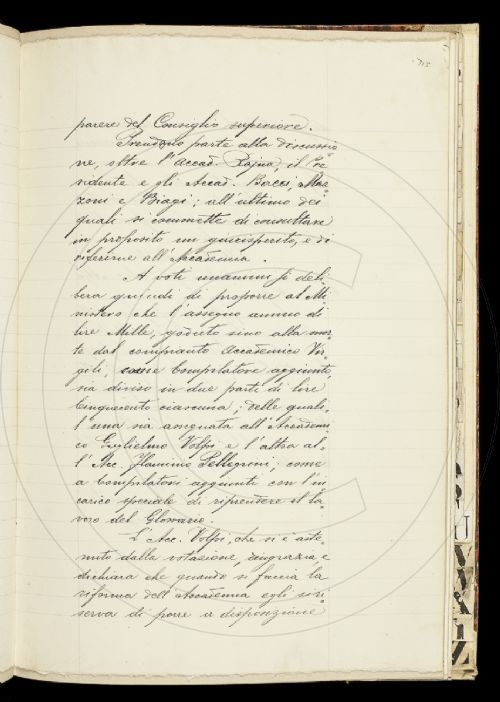 715
parere del Consiglio superiore.
Prendono parte alla discussio=
ne, oltre l'Accad. Rajna, il Pre=
sidente e gli Accad. Bacci, Maz=
zoni e Biagi; all'ultimo dei
quali si commette di consultare
in proposito un giureisperito, e di
riferirne all'Accademia.
A voti unanimi si deli=
bera quindi di proporre al Mi=
nistero che l'assegno annuo di
lire Mille, goduto sino alla mor=
te dal compianto Accademico Vir=
gili, come Compilatore aggiunto
sia diviso in due parti di lire
Cinquecento ciascuna; delle quali
l'una sia assegnata all'Accademi=
co Guglielmo Volpi e l'altra al=
l'Acc. Flaminio Pellegrini; come
a Compilatori aggiunti con l'in=
carico speciale di riprendere il la=
voro del Glossario.
L'Acc. Volpi, che si è aste=
nuto dalla votazione, ringrazia, e
dichiara che quando si faccia la
riforma dell'Accademia egli si ri=
serva di porre a disposizione